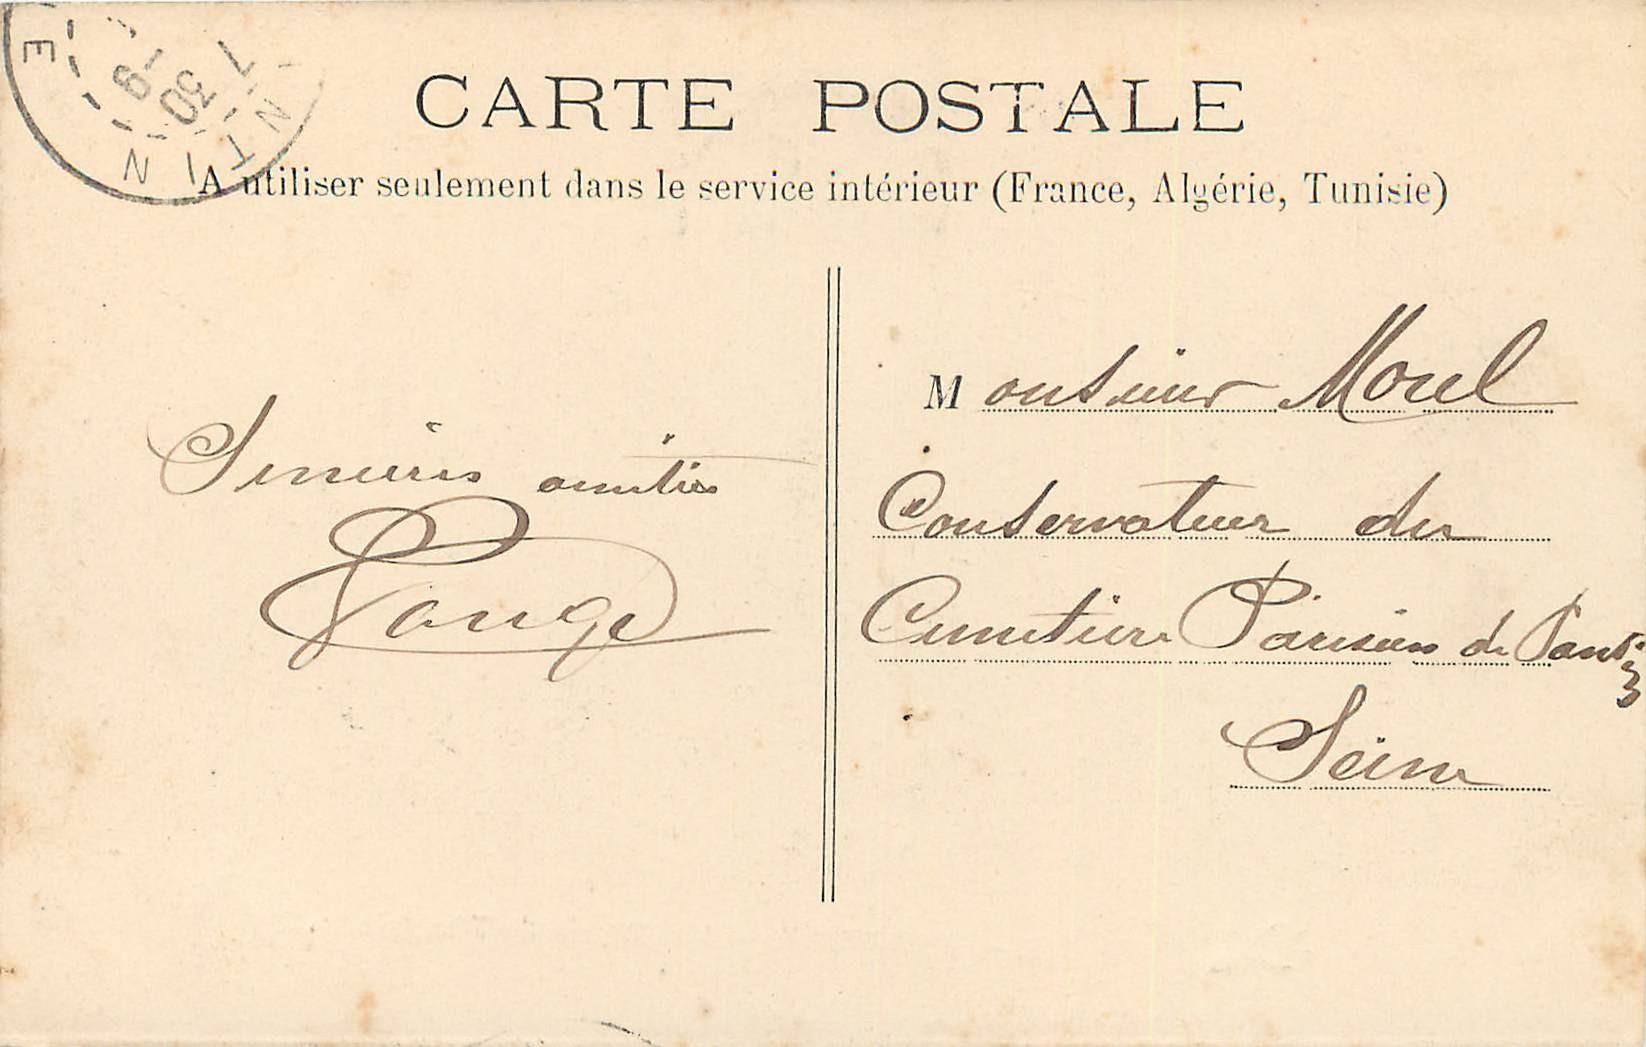 CARTE POSTALE
A utiliser seulement dans le service intérieur (France, Algérie, Tunisie)
Sincères amitiés
Monsieur Morel
Conservateur du
Cimetière Parisien de Pantin
Seine
NTIN
E
7 30
9